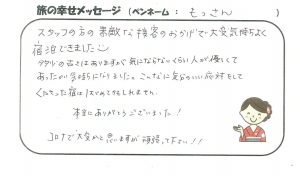 旅の幸せメッセージ（ペンネーム：もっさん）
スタッフの方の素敵な接客のおかげで大変気持ちよく
宿泊できました
の古さはありますが、気にならないくらい人が優しくて
あったかい気持ちになりました。こんなに気分のいい応対をして
くださった宿は
本当にありがとうございました！
コロナで大変かと思いますが頑張って下さい！！